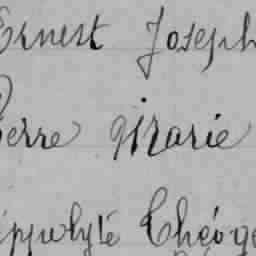 Ernest Joseph
Pierre girarie
hippolyte Théoge